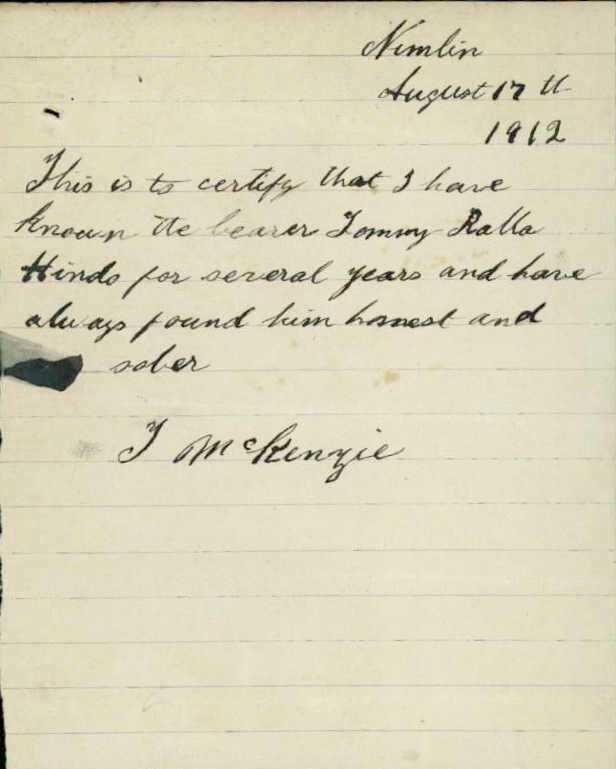 Nimlin
August 17th
1912
This is to certify that I have
known the bearer Tommy Ralla
Hindo for several years and have
always found him honest and
sober
J McKenzie